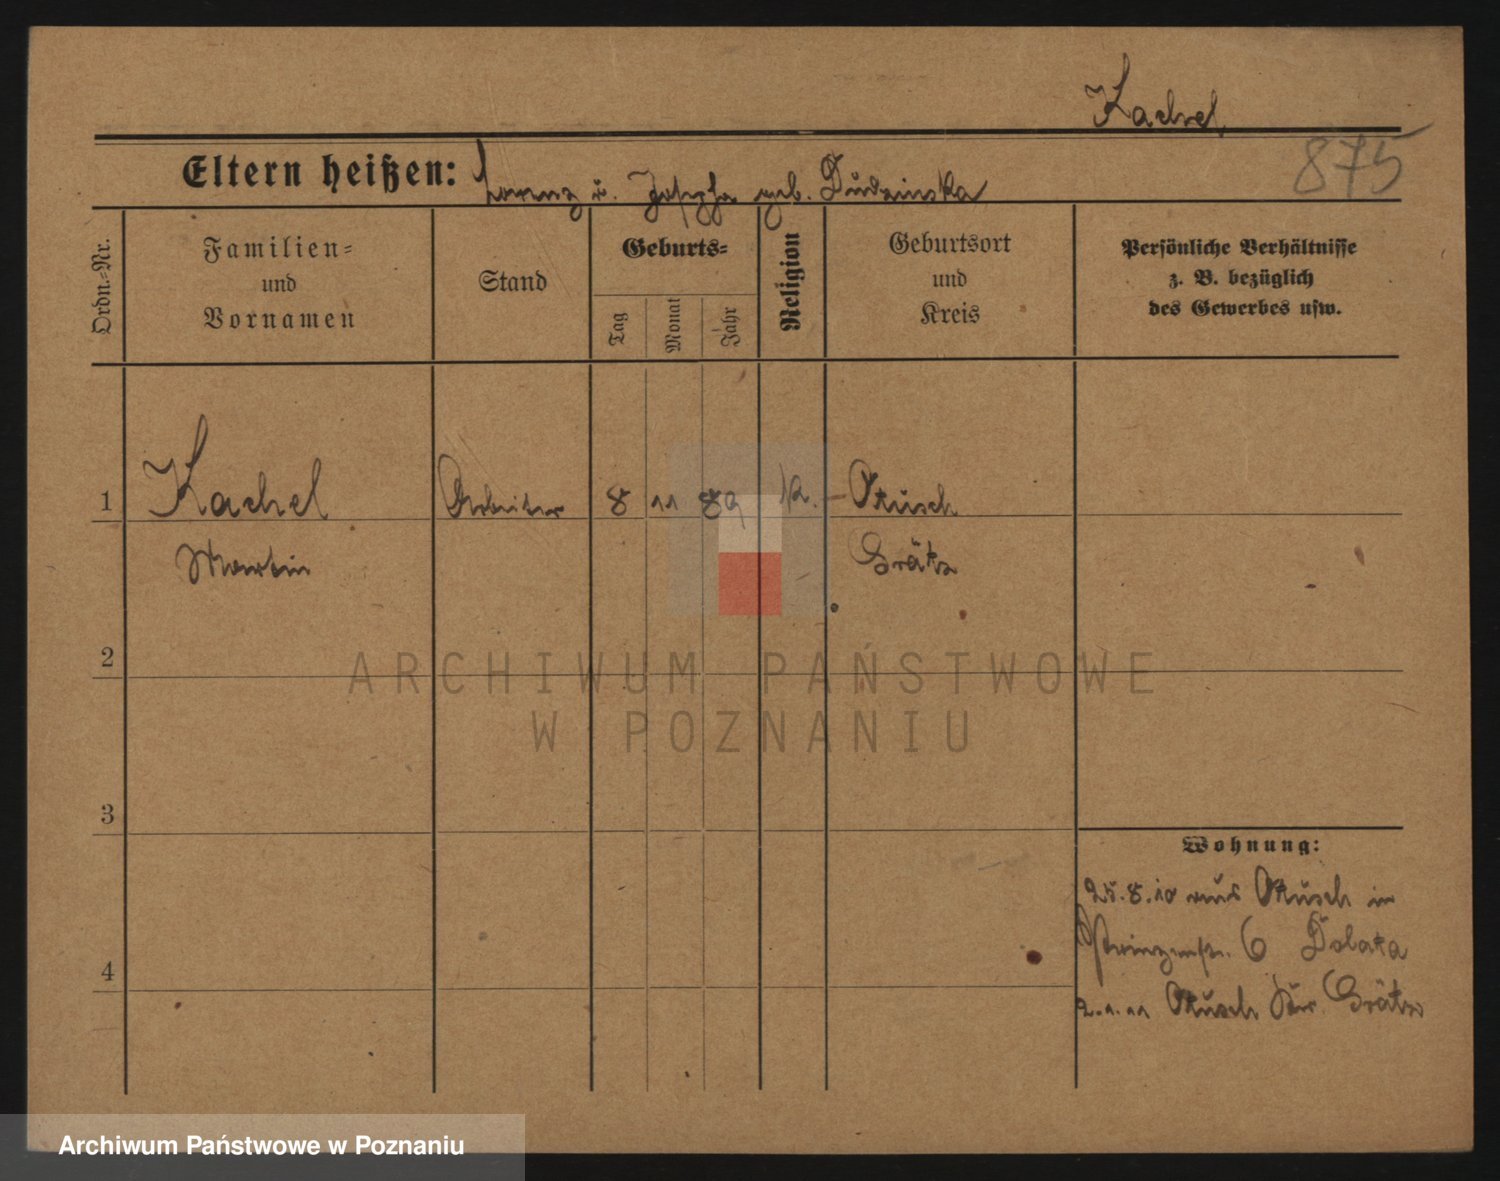 Kachel
875
Eltern heißen: Lorenz u. Josepha geb. Dudzinska
Ordn.-Nr.
Familien-
und
Vornamen
Stand
Geburts-
Tag
Monat
Jahr
Religion
Geburtsort
und
Kreis
Persönliche Verhältnisse
z. B. bezüglich
des Gewerbes usw.
1 Kachel Arbeiter 8 11 89 k. Otusch
Martin Grätz
2
3
4
Wohnung:
25.8.10 aus Otusch in
Prinzenstr. 6 Dolata
2.1.11 Otusch Kr. Grätz
ARCHIWUM PAŃSTWOWE
W POZNANIU
Archiwum Państwowe w Poznaniu